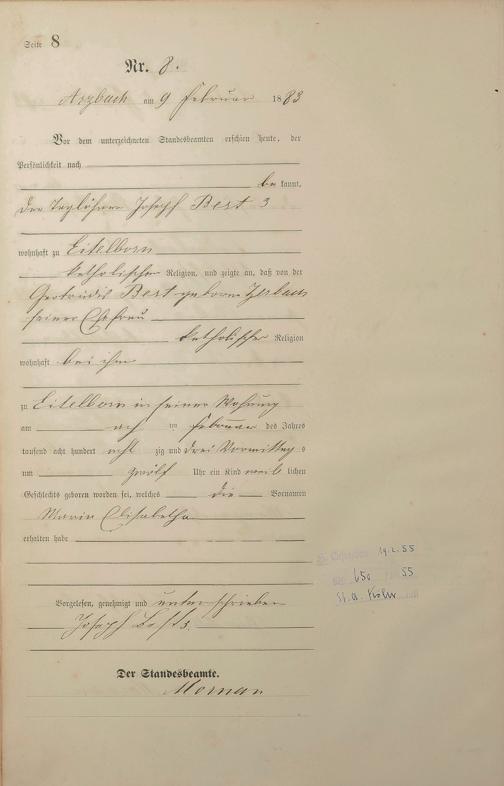 Seite 8
Nr. 8.
Arzbach am 9 Februar 1883
Vor dem unterzeichneten Standesbeamten erschien heute, der
Persönlichkeit nach
be kannt,
der Taglöhner Joseph Best 3
wohnhaft zu Eitelborn
katholischer Religion, und zeigte an, daß von der
Gertrudis Best geborne Zerbach
seiner Ehefrau
katholischer Religion
wohnhaft bei ihm
zu Eitelborn in seiner Wohnung
am acht ten Februar des Jahres
tausend acht hundert acht zig und drei Vormittags
um zwölf Uhr ein Kind weib lichen
Geschlechts geboren worden sei, welches die Vornamen
Maria Elisabetha
erhalten habe
Vorgelesen, genehmigt und unterschrieben
Joseph Best 3.
Der Standesbeamte.
G. Gestorben 55
Nr. 650 55
St. A. Köln